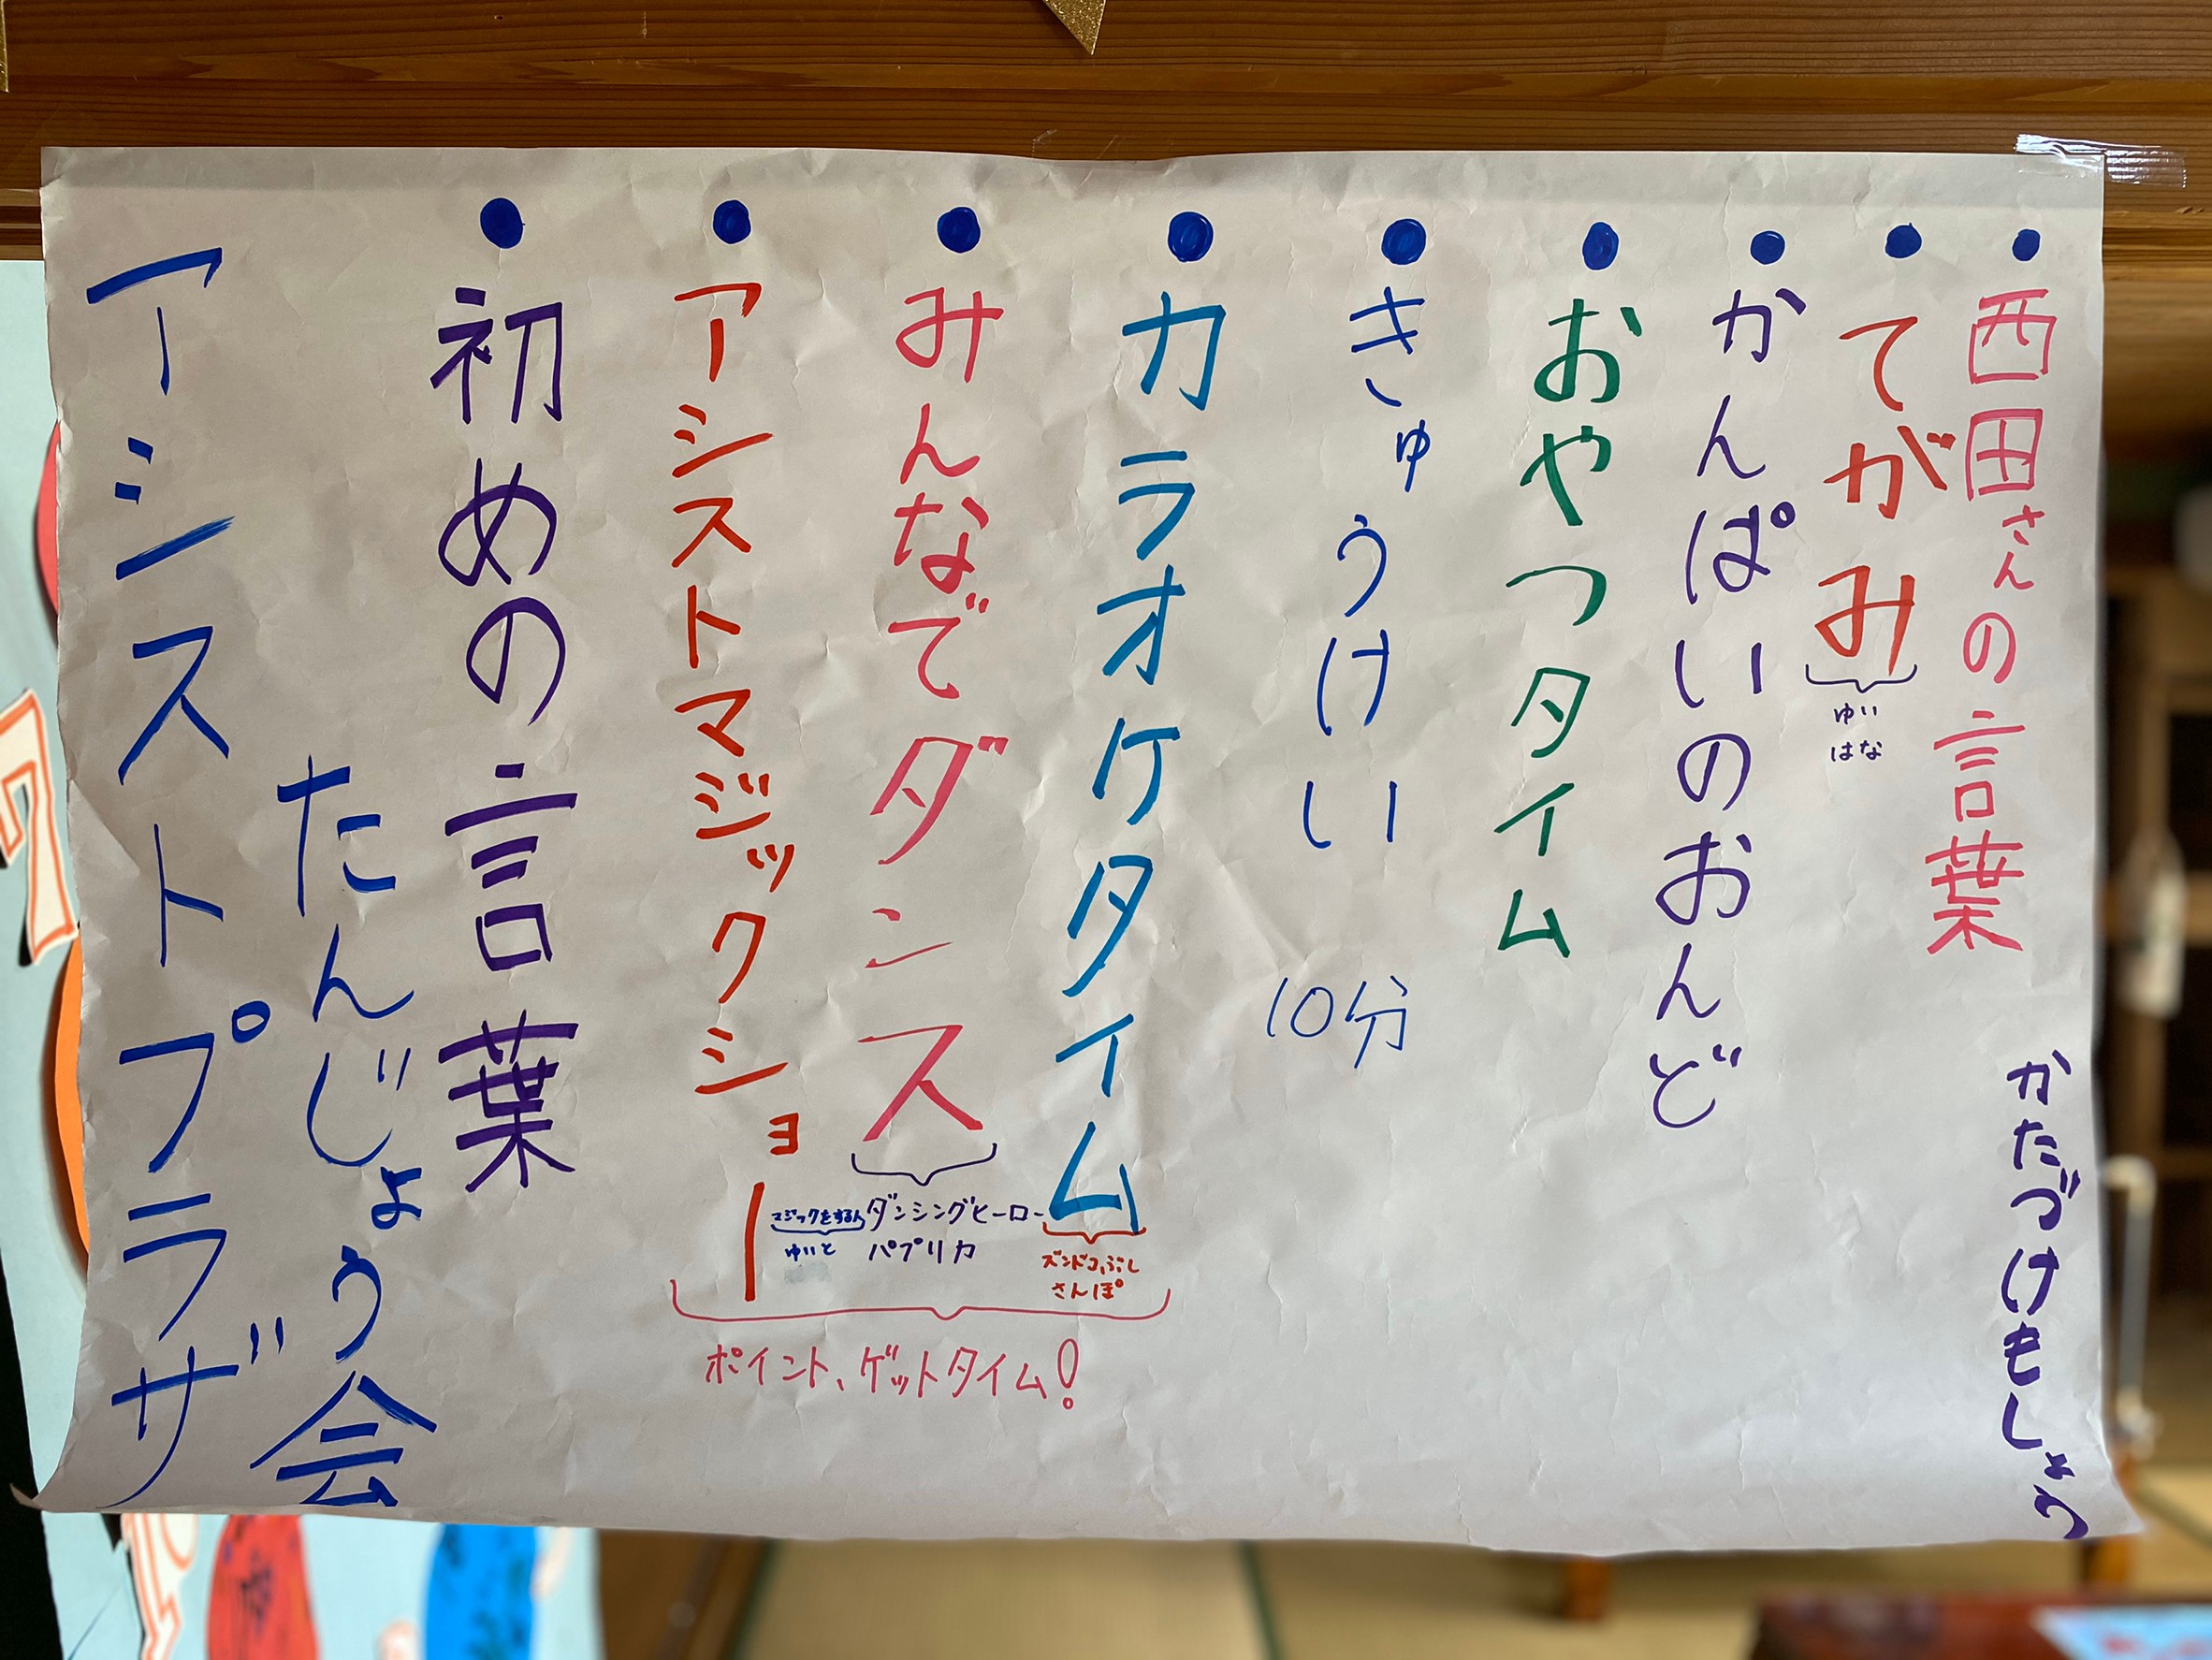 アシストプラザ
たんじょう会
●初めの言葉
●アシストマジックショー
マジックをする人
ゆいと
●みんなでダンス
ダンシングヒーロー
パプリカ
●カラオケタイム
ズンドコぶし
さんぽ
ポイント、ゲットタイム!
●きゅうけい 10分
●おやつタイム
●かんぱいのおんど
●てがみ
ゆい
はな
●西田さんの言葉
かたづけもしょう